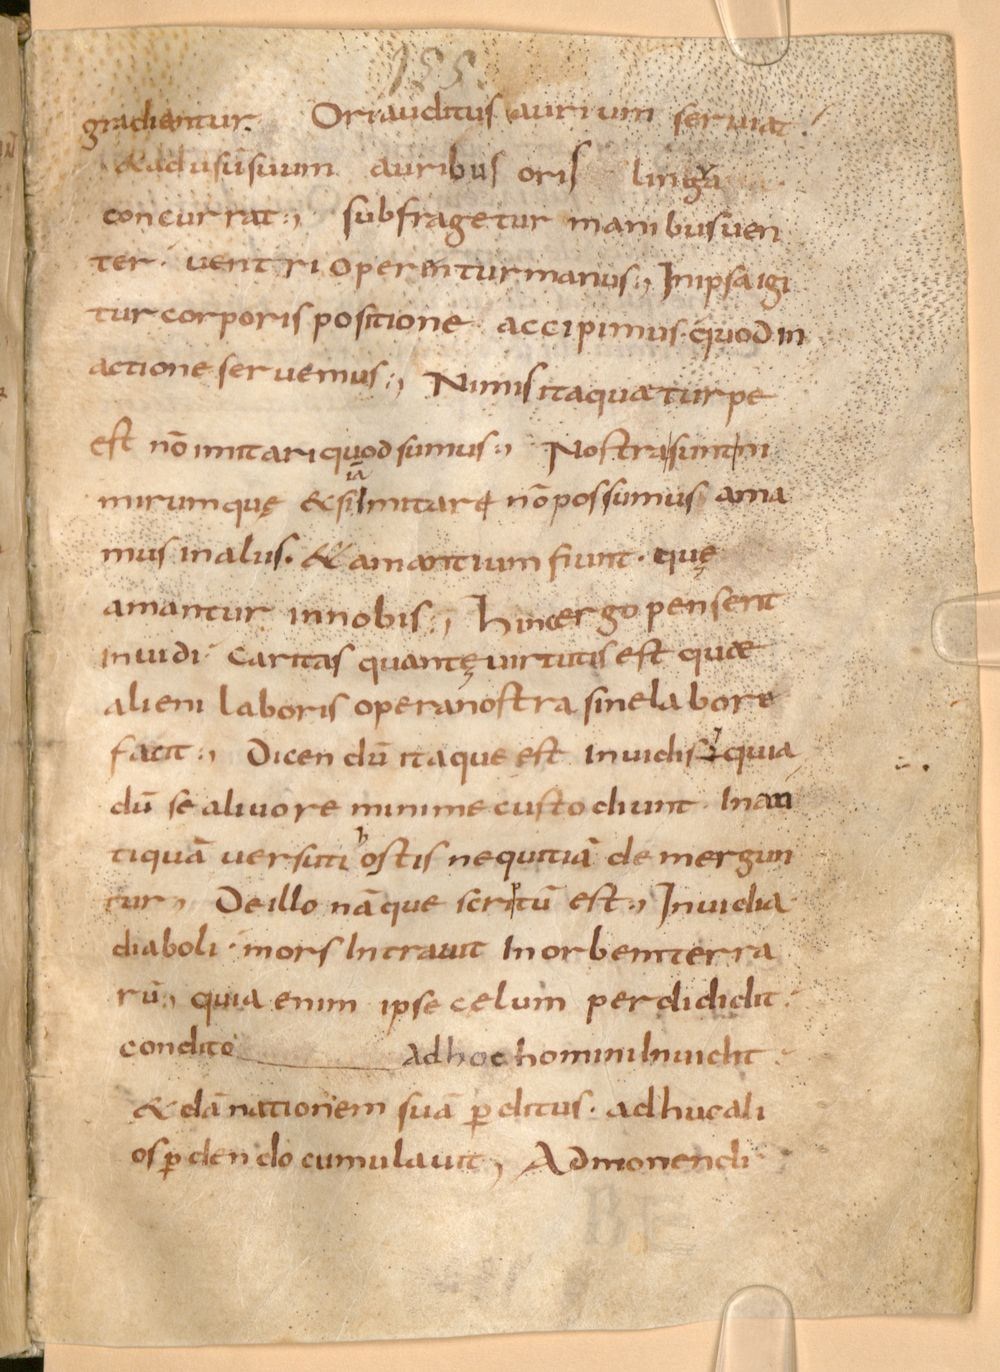 155
gradiantur. Ori auditus aurium seruiat.
& ad usū suum auribus oris lingua
concurrat:, subfragetur manibus uen
ter. uentri operentur manus:, In ipsa igi
tur corporis positione. accipimus. quod in
actione seruemus:, Nimis itaque turpe
est nō imitari quod sumus:, Nostra sunt ni
mirum quę & si imitare nō possumus ama
mus in alus. & amantium fiunt. quę
amantur in nobis:, hinc ergo pensent
inuidi. caritas quantę uirtutis est quae
alieni laboris opera nostra sine labore
facit:, Dicendū itaque est inuidis quia
dū se a liuore minime custodiunt. In an
tiquā uersuti hostis nequitiā demergun
tur, De illo nāque scriptū est:, Inuidia
diaboli. mors Intrauit In orbem terra
rū:, quia enim ipse celum perdididit.
condito ad hoc homini Inuidit.
& dānationem suā p̄ditus. adhuc ali
os p̄dendo cumulauit, Admonendi
BE